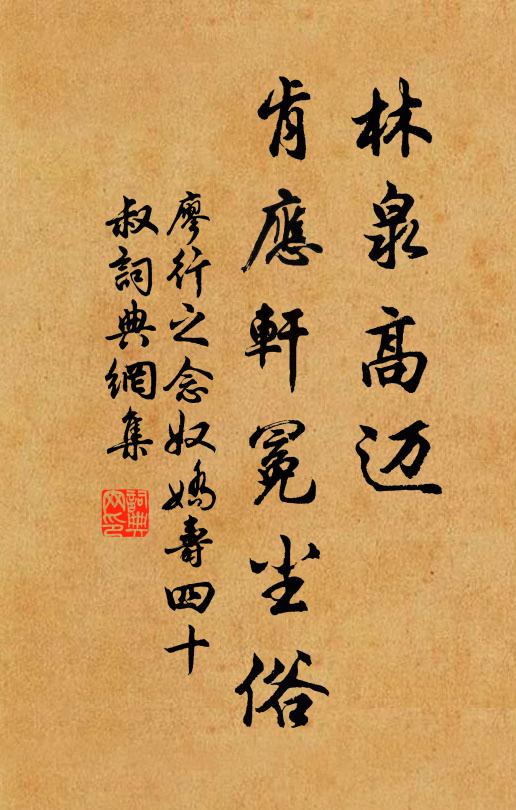 林泉高迈
肯應軒冕尘俗
廖行之念奴嬌壽四十
叔詞典網集
詞典
网印